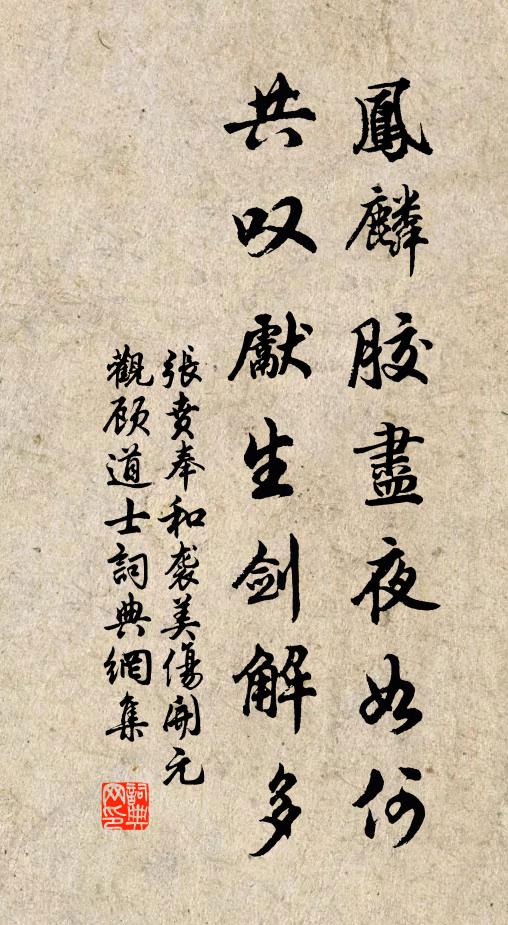 鳳麟膠盡夜如何
共叹獻生劍解多
張賁奉和袭美傷開元
觀顾道士詞典網集
詞典
网印